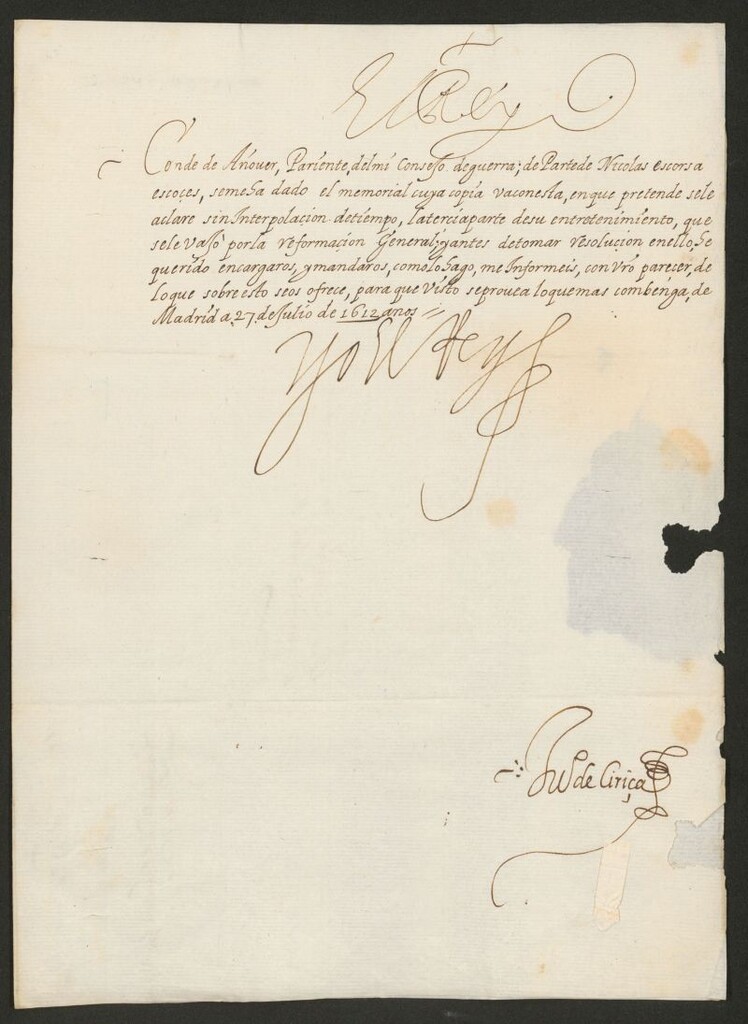 El Rey
Conde de Añouer, Pariente, del mi Consejo de guerra; de Parte de Nicolas escorsa
escoçes, se me ha dado el memorial cuya copia va con esta, en que pretende se le
aclare sin Interpolacion de tiempo, la tercia parte de su entretenimiento, que
se le vajò por la reformacion General; y antes de tomar resolucion en ello, he
querido encargaros, y mandaros, como lo hago, me Informeis, con vrõ parecer, de
lo que sobre esto se os ofrece, para que visto se prouea lo que mas combenga, de
Madrid a 27 de Julio de 1612 años
Yo El Rey
de Ciriça